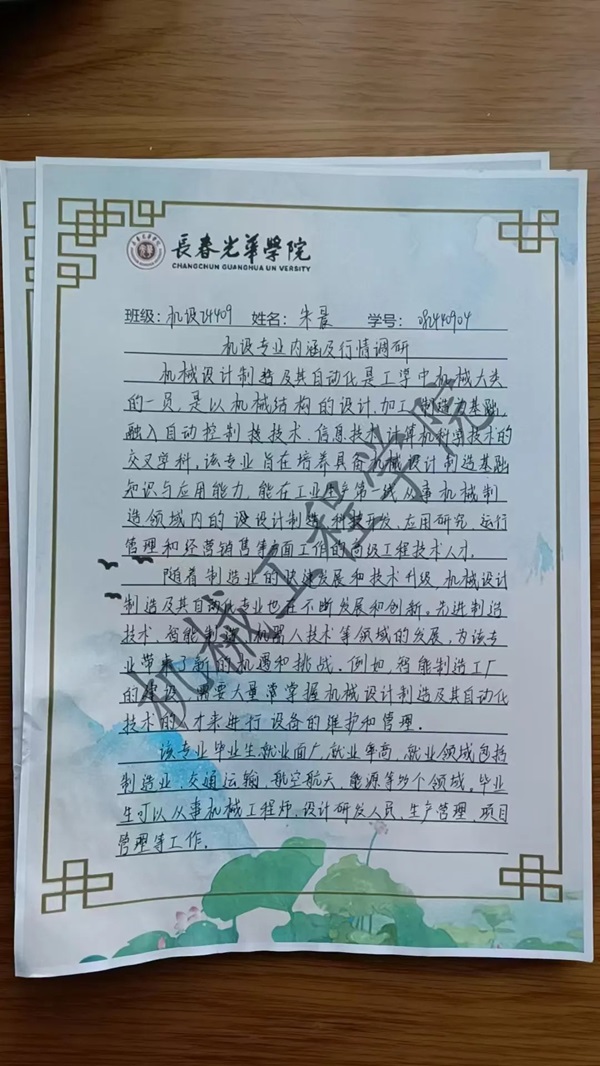 長春光華學院
CHANGCHUN GUANGHUA UN VERSITY
班级: 机设24409 姓名: 朱晨 学号: 082440904
机设专业内涵及行情调研
机械设计制造及其自动化是工学中机械大类
的一员,是以机械结构的设计、加工、制造为基础,
融入自动控制技术、信息技术、计算机科学技术的
交叉学科,该专业旨在培养具备机械设计制造基础
知识与应用能力,能在工业生产第一线从事机械制
造领域内的设设计制造、科技开发、应用研究、运行
管理和经营销售等方面工作的高级工程技术人才.
随着制造业的快速发展和技术升级,机械设计
制造及其自动化专业也在不断发展和创新。先进制造
技术、智能制造、机器人技术等领域的发展,为该专
业带来了新的机遇和挑战.例如,智能制造工厂
的建设,需要大量掌握机械设计制造及其自动化
技术的人才来进行设备的维护和管理.
该专业毕业生就业面广,就业率高,就业领域包括
制造业、交通运输、航空航天、能源等多个领域。毕业
生可以从事机械工程师、设计研发人员、生产管理、项目
管理等工作.
机械工程学院